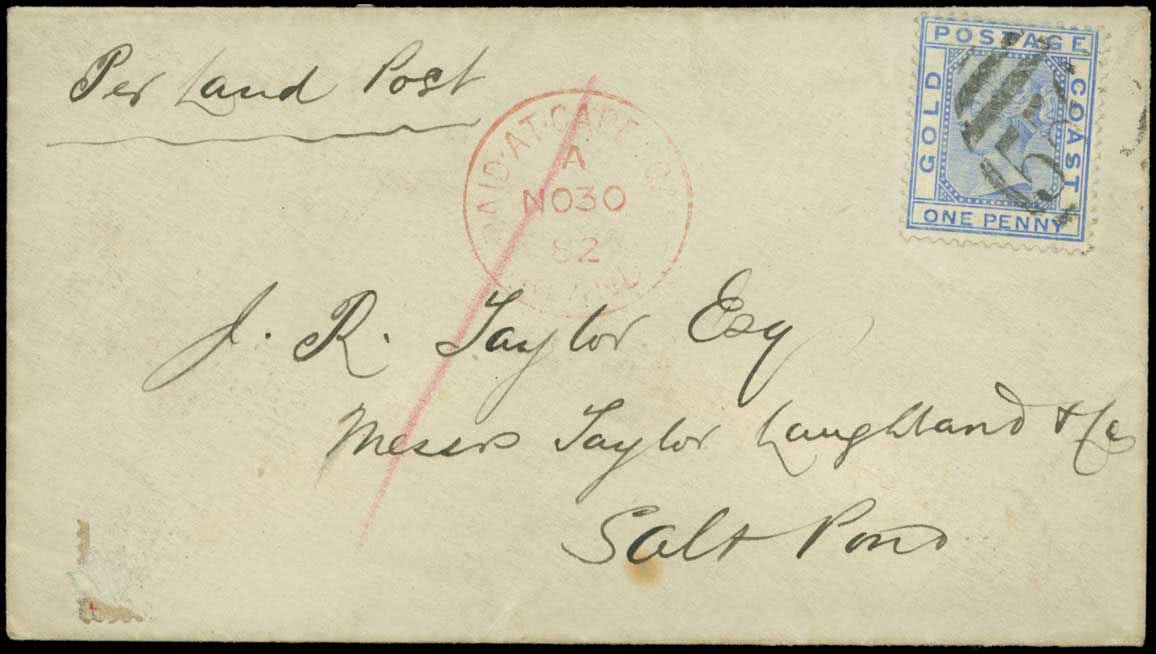 Per Land Post
POSTAGE
GOLD
COAST
ONE PENNY
PAID·AT·CAPE CO
A
NO30
82
J. R. Taylor Esq
Messrs Taylor Laughland & Co
Salt Pond